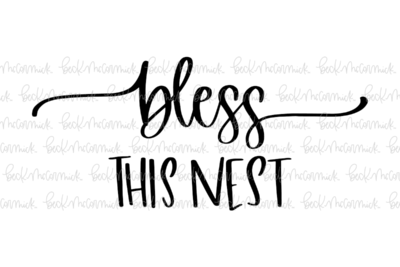 bless
THIS NEST